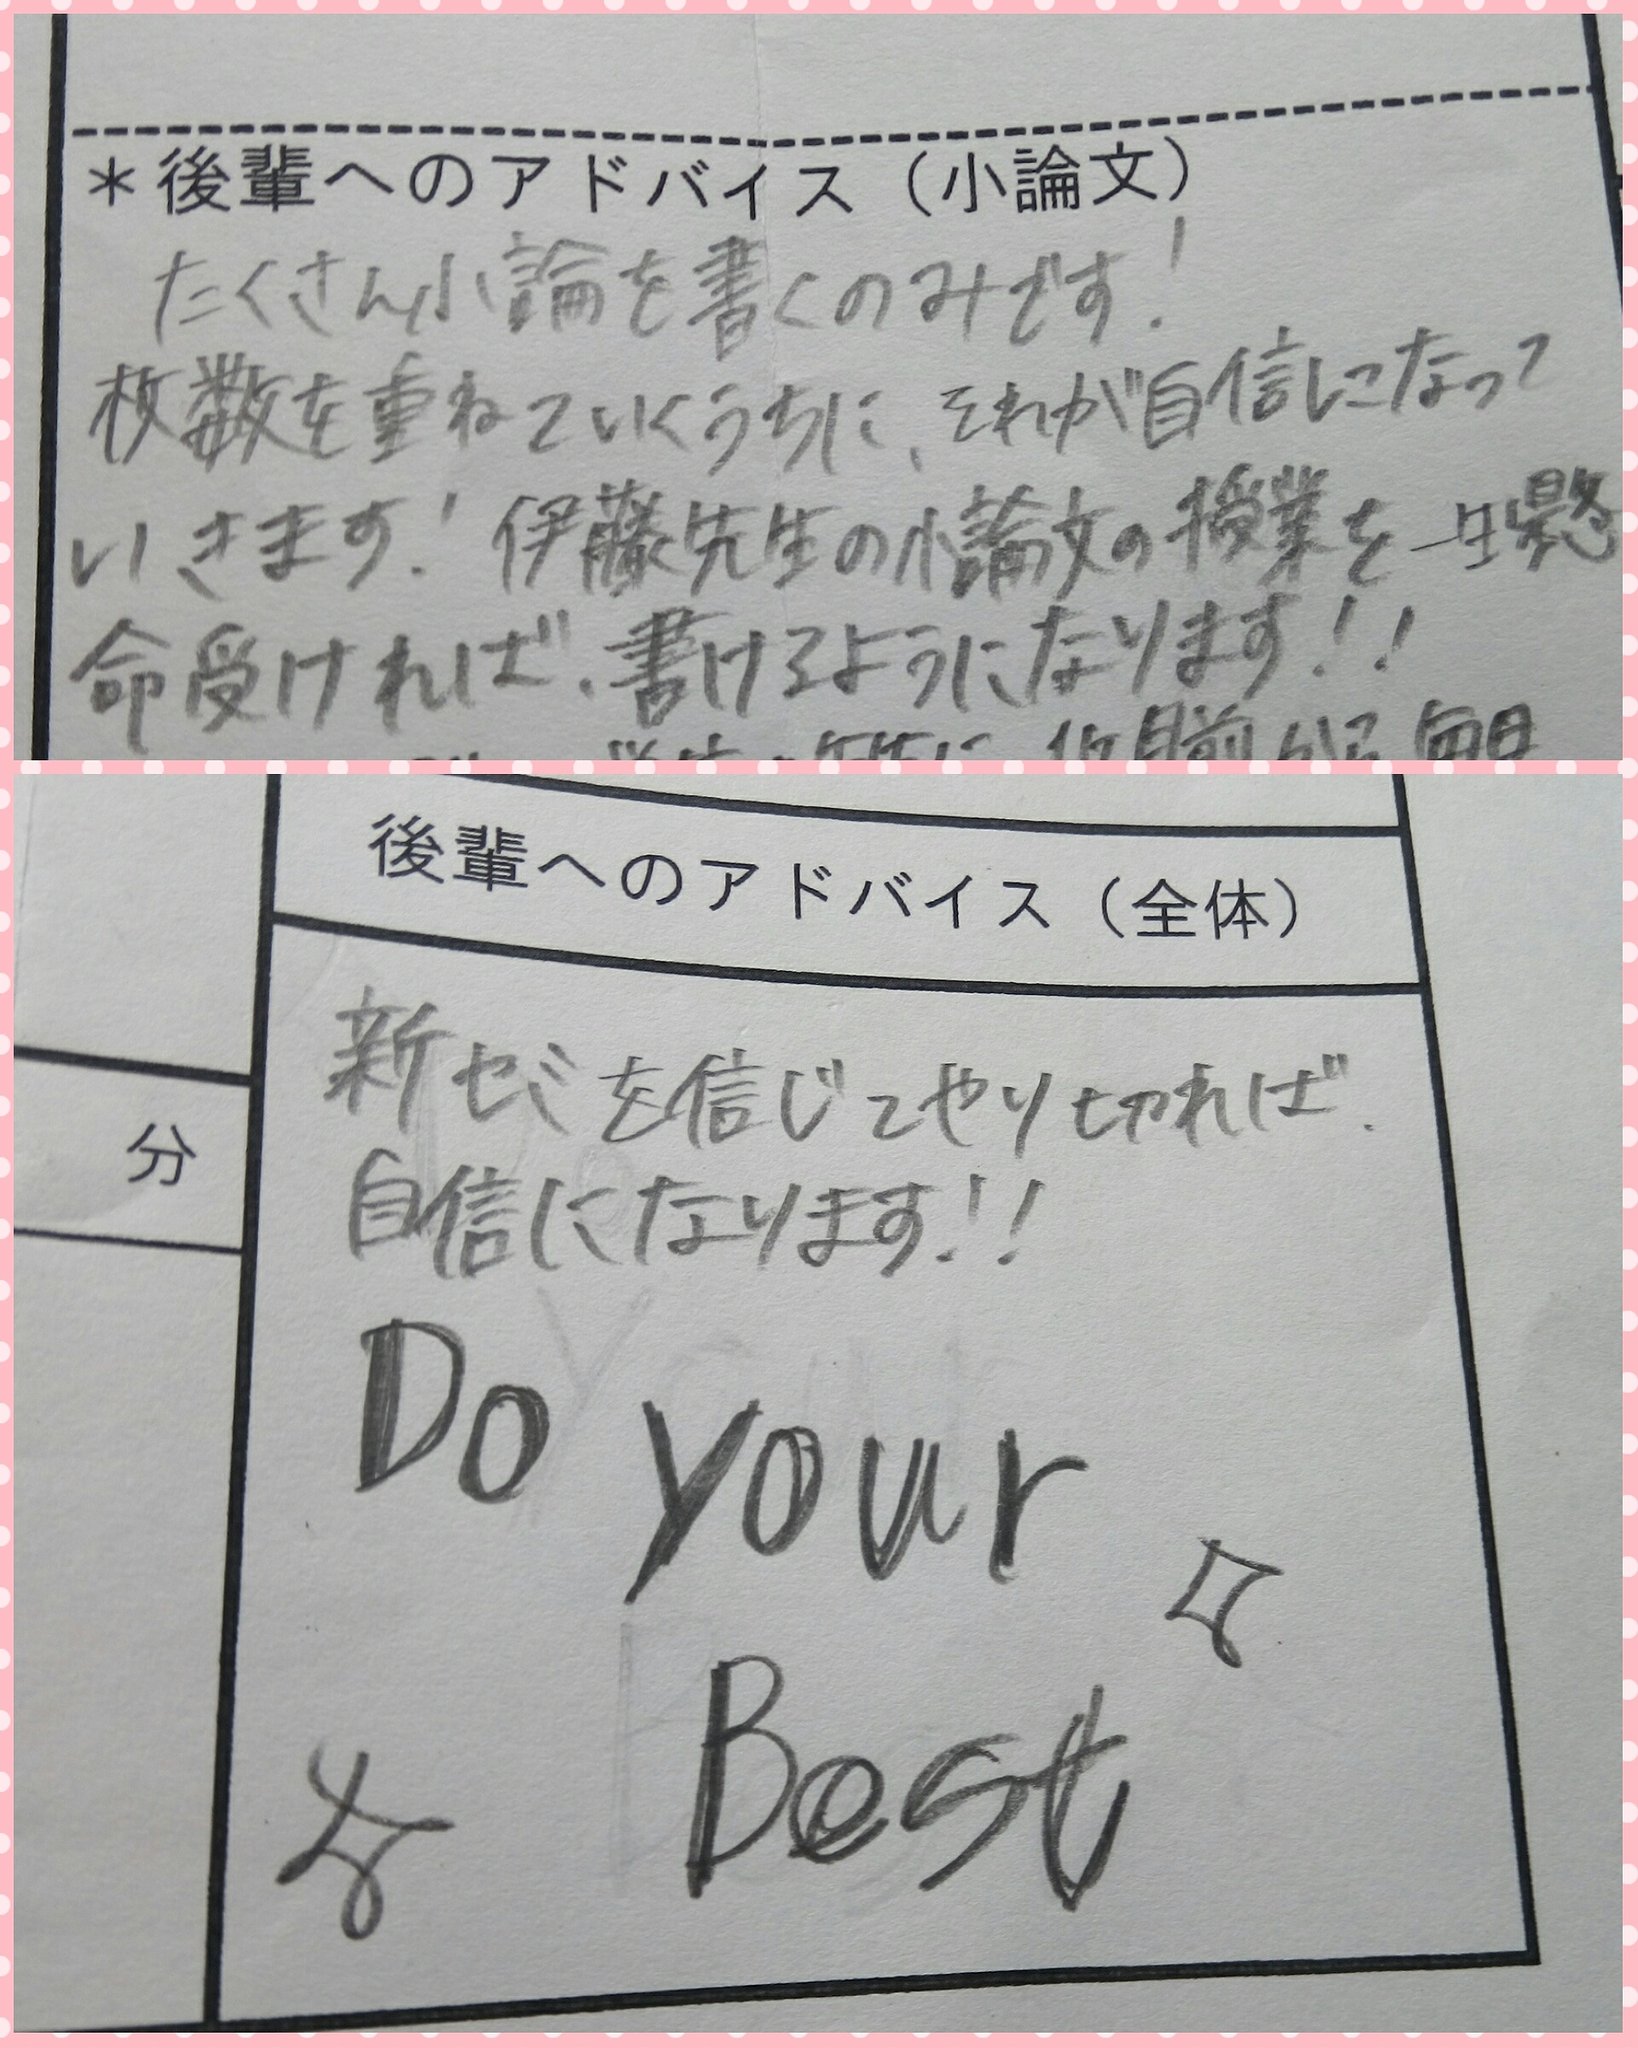 ＊後輩へのアドバイス（小論文）
たくさん小論を書くのみです！
枚数を重ねていくうちに、それが自信になって
いきます！伊藤先生の小論文の授業を一生懸
命受ければ、書けるようになります！！
後輩へのアドバイス（全体）
分
新ゼミを信じてやり切れば、
自信になります！！
Do your
Best